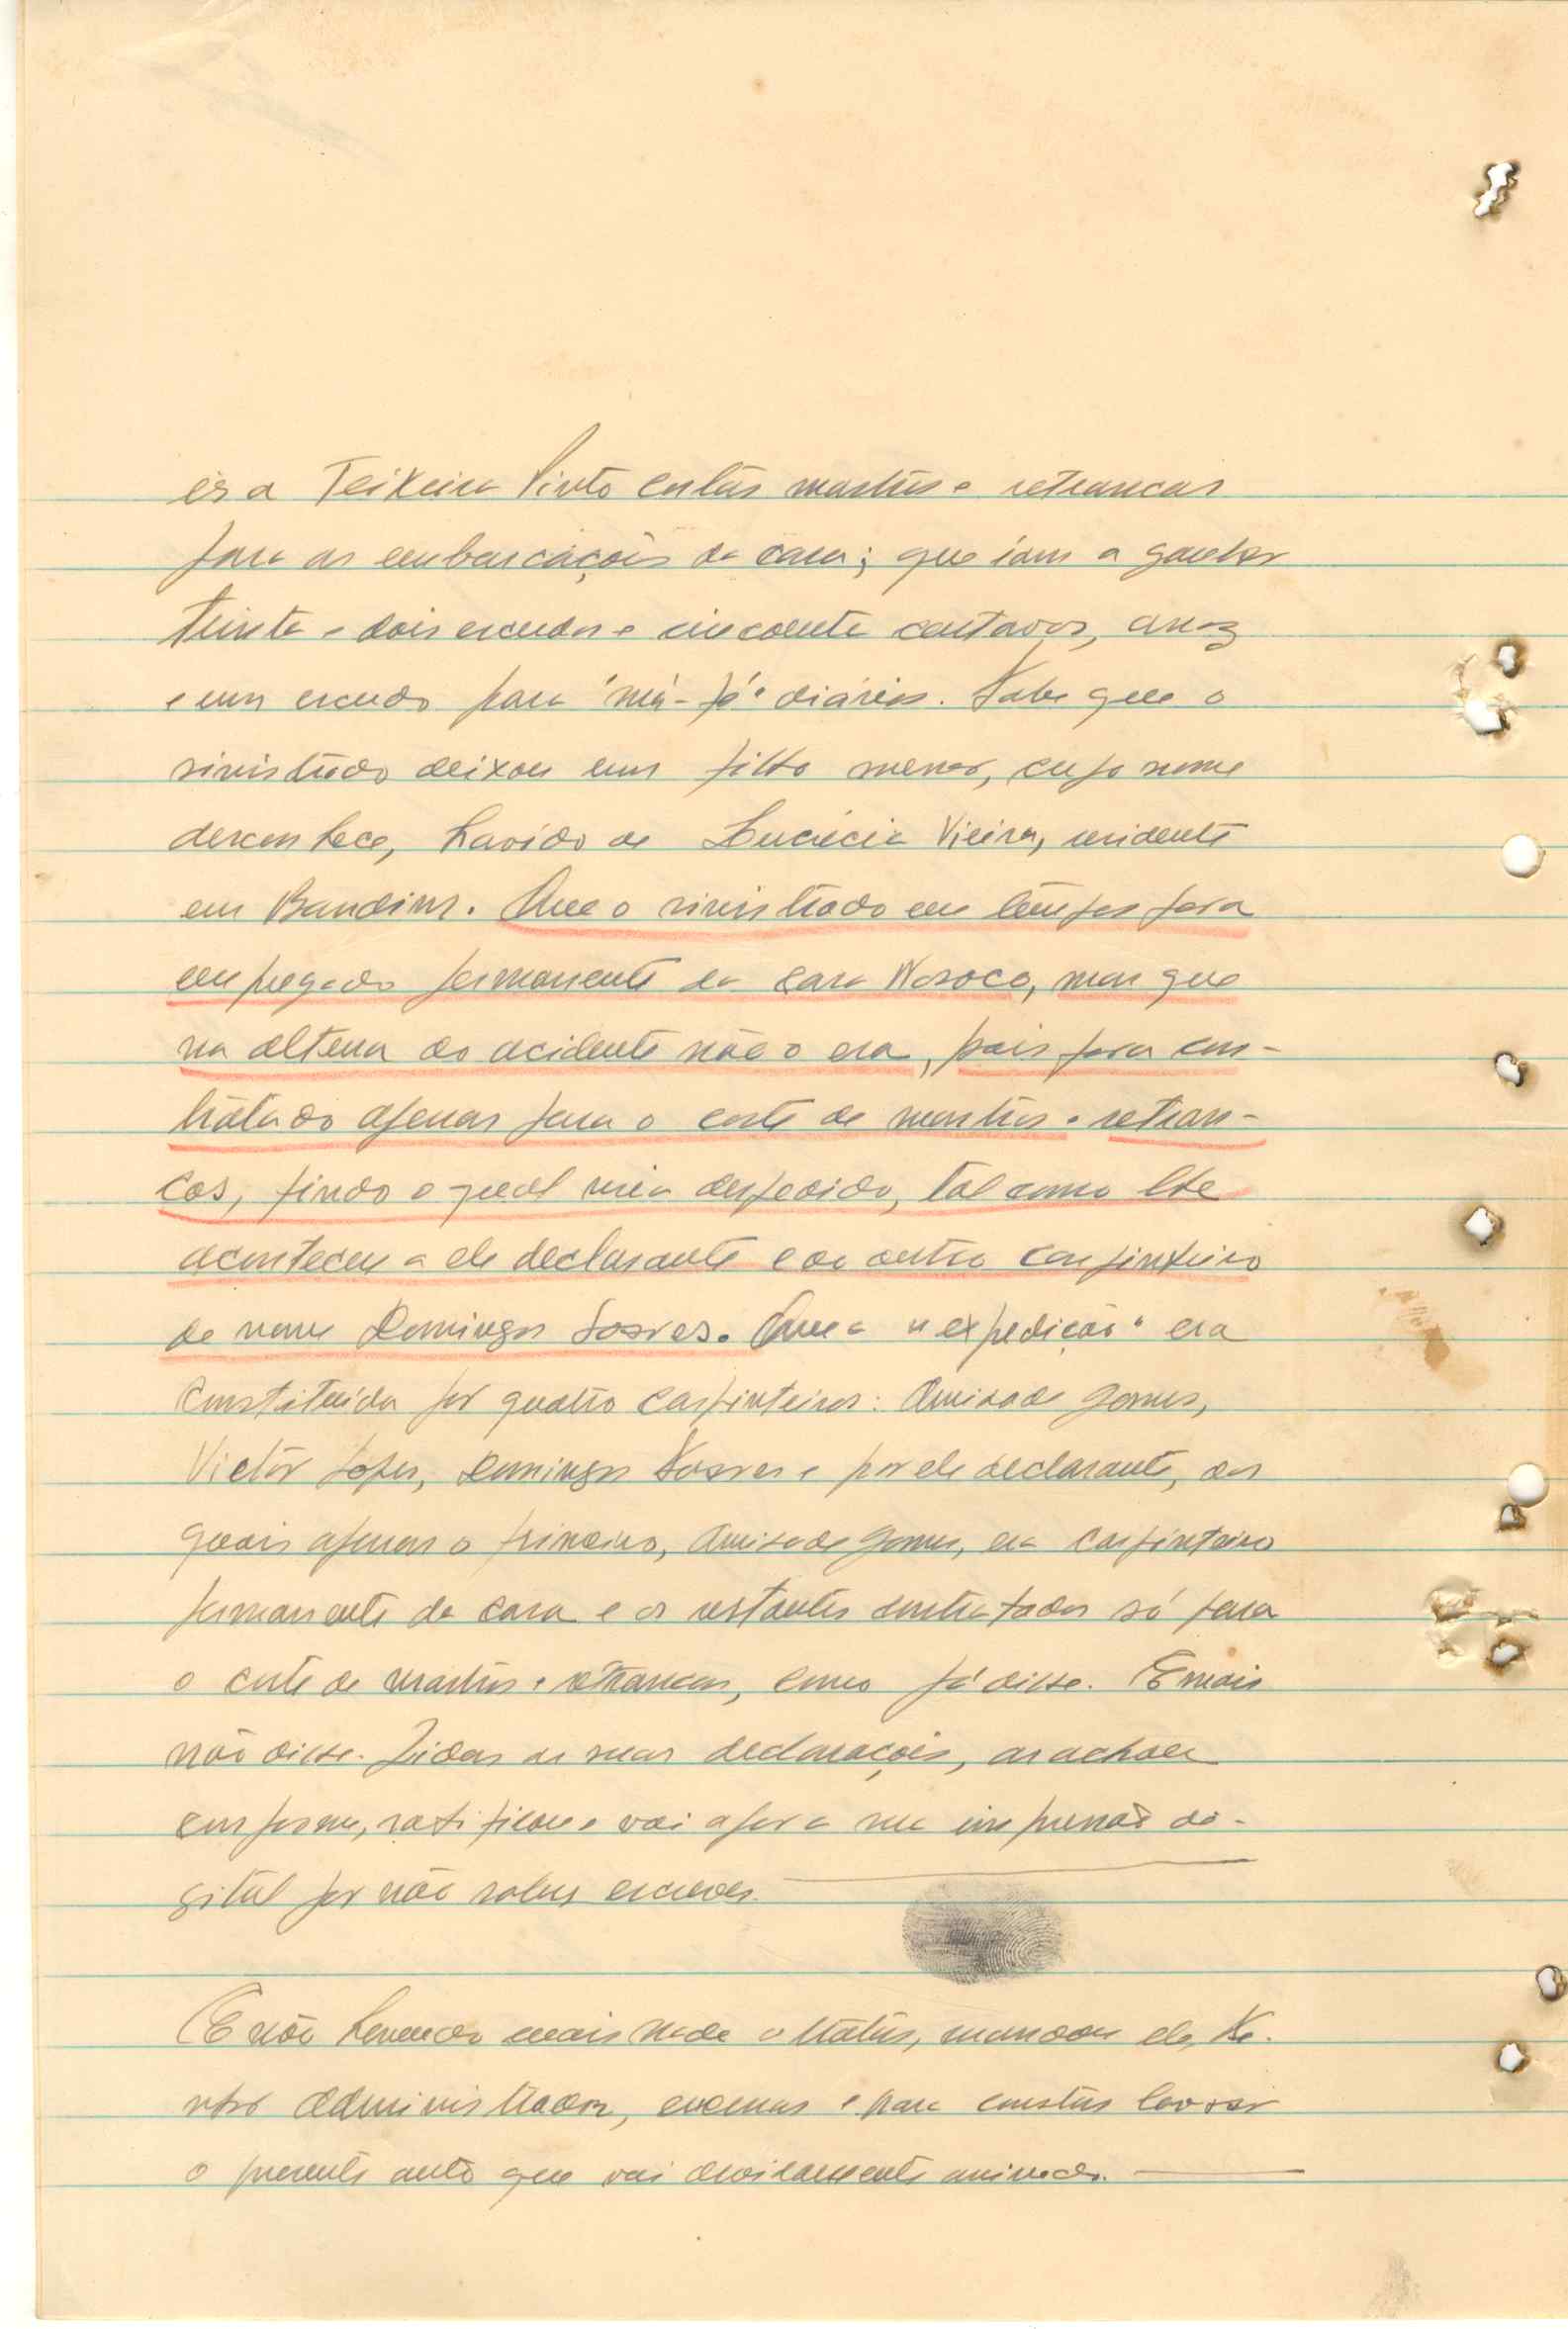 és a Teixeira Pinto cortar mastros e retrancas
para as embarcações da casa; que iam a ganhar
trinta e dois escudos e cincoenta centavos, arroz
e um escudo para "má-fé" diários. Sabe que o
sinistrado deixou um filho menor, cujo nome
desconhece, havido de Lucrécia Vieira, residente
em Bandim. Que o sinistrado em tempos fora
empregado permanente da casa Nosoco, mas que
na altura do acidente não o era, pois fora con-
tratado apenas para o corte de mastros e retran-
cas, findo o qual seria despedido, tal como lhe
aconteceu a ele declarante e ao outro carpinteiro
de nome Domingos Soares. Que a "expedição" era
constituída por quatro carpinteiros: Amizade Gomes,
Victor Lopes, Domingos Soares e por ele declarante, dos
quais apenas o primeiro, Amizade Gomes, era carpinteiro
permanente da casa e os restantes contratados só para
o corte de mastros e retrancas, como já disse. E mais
não disse. Lidas as suas declarações, as achou
conforme, ratificou e vai apor a sua impressão di-
gital por não saber escrever.
E não havendo mais nada a tratar, mandou ele, Se-
nhor Administrador, encerrar e para constar lavrar
o presente auto que vai devidamente assinado.